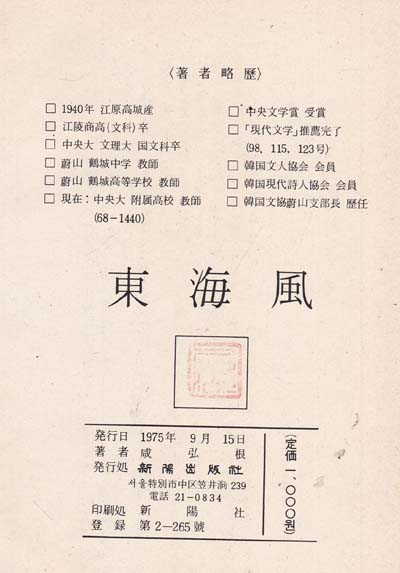 〈著者略歷〉
□ 1940年 江原高城産
□ 江陵商高(文科)卒
□ 中央大 文理大 国文科卒
□ 蔚山 鶴城中学 教師
□ 蔚山 鶴城高等学校 教師
□ 現在: 中央大 附属高校 教師
(68-1440)
□ 中央文学賞 受賞
□ 「現代文学」推薦完了
(98, 115, 123号)
□ 韓国文人協会 会員
□ 韓国現代詩人協会 会員
□ 韓国文協蔚山支部長 歷任
東海風
発行日 1975年 9月 15日
著者 咸弘根
発行処 新陽出版社
서울特別市中区笠井洞 239
電話 21-0834
印刷処 新陽社
登録 第2-265號
(定価 一,○○○원)